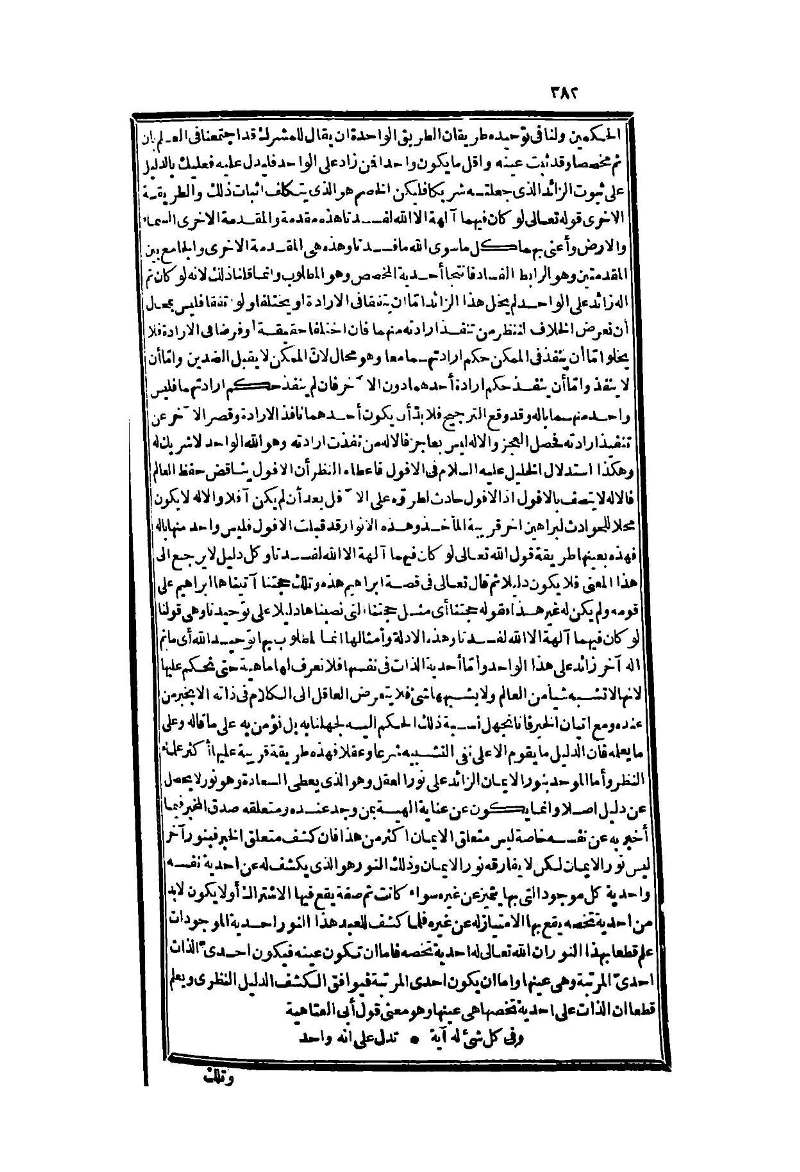 ٣٨٢
الحكمين ولنا فى توحيده طريقان الطريق الواحدة ان يقال للمشرك قد اجتمعنا فى العلم بان
ثم مخصصا وقد ثبت عينه واقل ما يكون واحدا فمن زاد على الواحد فليدل عليه فعليك بالدليل
على ثبوت الزائد الذى جعلته شريكا فليكن الخصم هو الذى يتكلف اثبات ذلك والطريقة
الاخرى قوله تعالى لو كان فيهما آلهة الا الله لفسدتا هذه مقدمة والمقدمة الاخرى السماء
والارض وأعنى بهما كل ما سوى الله ما فسدتا وهذه هى المقدمة الاخرى والجامع بين
المقدمتين وهو الرابط الفساد فانتجا أحدية المخصص وهو المطلوب وانما قلنا ذلك لانه لو كان ثم
اله زائد على الواحد لم يخل هذا الزائد اما ان يتفقا فى الارادة او يختلفا ولو اتفقا فليس بمحال
أن نعرض الخلاف لننظر من تنفذ ارادته منهما فان اختلفا حقيقة أو فرضا فى الارادة فلا
يخلوا ما أن ينفذ فى الممكن حكم ارادتهما معا وهو محال لان الممكن لا يقبل الضدين واما أن
لا ينفذ واما أن ينفذ حكم ارادة أحدهما دون الآخر فان لم ينفذ حكم ارادتهما فليس
واحد منهما باله وقد وقع الترجيح فلا بد أن يكون أحدهما نافذ الارادة وقصر الآخر عن
تنفيذ ارادته فحصل العجز والاله ليس بعاجز فالاله من نفذت ارادته وهو الله الواحد لا شريك له
وهكذا استدلال الخليل عليه السلام فى الافول فاعطاه النظر أن الافول يناقض حفظ العالم
فالاله لا يتصف بالافول اذ الافول حادث لطروه على الآفل بعد أن لم يكن آفلا والاله لا يكون
محلا للحوادث لبراهين اخر قريبة المأخذ وهذه الانوار قد قبلت الافول فليس واحد منها باله
فهذه بعينها طريقة قول الله تعالى لو كان فيهما آلهة الا الله لفسدتا وكل دليل لا يرجع الى
هذا المعنى فلا يكون دليلا ثم قال تعالى فى قصة ابراهيم هذه وتلك حجتنا آتيناها ابراهيم على
قومه ولم يكن له غير هذا فقوله حجتنا أى مثل حجتنا التى نصبناها دليلا على توحيدنا وهى قولنا
لو كان فيهما آلهة الا الله لفسدتا وهذه الادلة وأمثالها انما المطلوب بها توحيد الله أى ما ثم
اله آخر زائد على هذا الواحد وأما أحدية الذات فى نفسها فلا نعرف لها ماهية حتى نحكم عليها
لانها لا تشبه شيأ من العالم ولا يشبهها شئ فلا يتعرض العاقل الى الكلام فى ذاته الا بخبر من
عنده ومع اتيان الخبر فانا نجهل نسبة ذلك الحكم اليه لجهلنا به بل نؤمن به على ما قاله وعلى
ما يعلمه فان الدليل ما يقوم الا على نفى التشبيه شرعا وعقلا فهذه طريقة قريبة عليها أكثر علماء
النظر وأما الموحد بنور الايمان الزائد على نور العقل وهو الذى يعطى السعادة وهو نور لا يحصل
عن دليل اصلا وانما يكون عن عناية الهية بمن وجد عنده ومتعلقه صدق المخبر فيما
أخبر به عن نفسه خاصة ليس متعلق الايمان اكثر من هذا فان كشف متعلق الخبر فبنور آخر
ليس نور الايمان لكن لا يفارقه نور الايمان وذلك النور هو الذى يكشف له عن احدية نفسه
واحدية كل موجود التى بها يتميز عن غيره سواء كانت ثم صفة يقع فيها الاشتراك أولا يكون لا بد
من احدية تخصه يقع بها الامتياز له عن غيره فلما كشف للعبد هذا النور احدية الموجودات
علم قطعا بهذا النور ان الله تعالى له احدية تخصه فاما ان تكون عينه فيكون احدى الذات
احدى المرتبة وهى عينها واما ان يكون احدى المرتبة فيوافق الكشف الدليل النظرى ويعلم
قطعا ان الذات على احدية تخصها هى عينها وهو معنى قول أبى العتاهية
وفى كل شئ له آية * تدل على انه واحد
وتلك